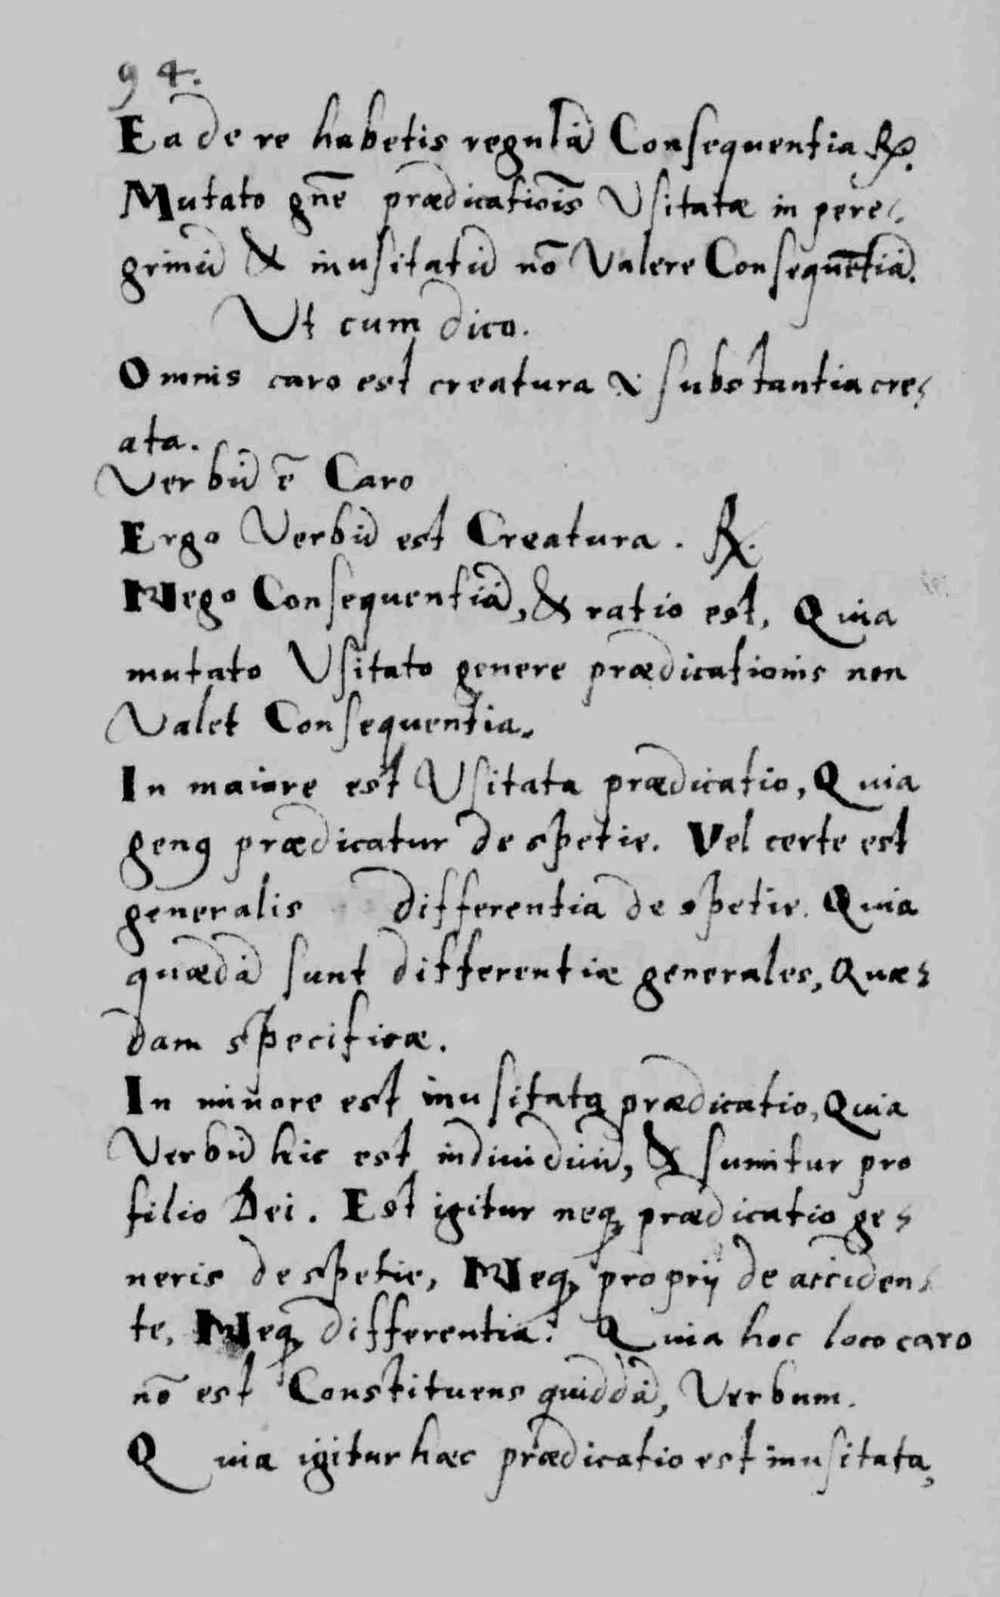 94.
Ea de re habetis regulā Consequentia ℞.
Mutato gn̄e prædicatiōis Usitatæ in pere-
grinā & inusitatā nō Valere Consequētiā.
Ut cum dico.
Omnis caro est creatura & substantia cre-
ata.
Verbū ē Caro
Ergo Verbū est Creatura. ℞.
Nego Consequentiā, & ratio est, Quia
mutato Usitato genere prædicationis non
Valet Consequentia.
In maiore est Usitata prædicatio, Quia
genꝰ prædicatur de spetie. Vel certe est
generalis differentia de spetie. Quia
quædā sunt differentiæ generales, Quæ-
dam specificæ.
In minore est inusitata prædicatio, Quia
Verbū hic est indiuiduū, & sumitur pro
filio Dei. Est igitur neqꝫ prædicatio ge-
neris de spetie, Neqꝫ proprij de acciden-
te, Neqꝫ differentia: Quia hoc loco caro
nō est Constituens quiddā, Verbum.
Quia igitur hæc prædicatio est inusitata,